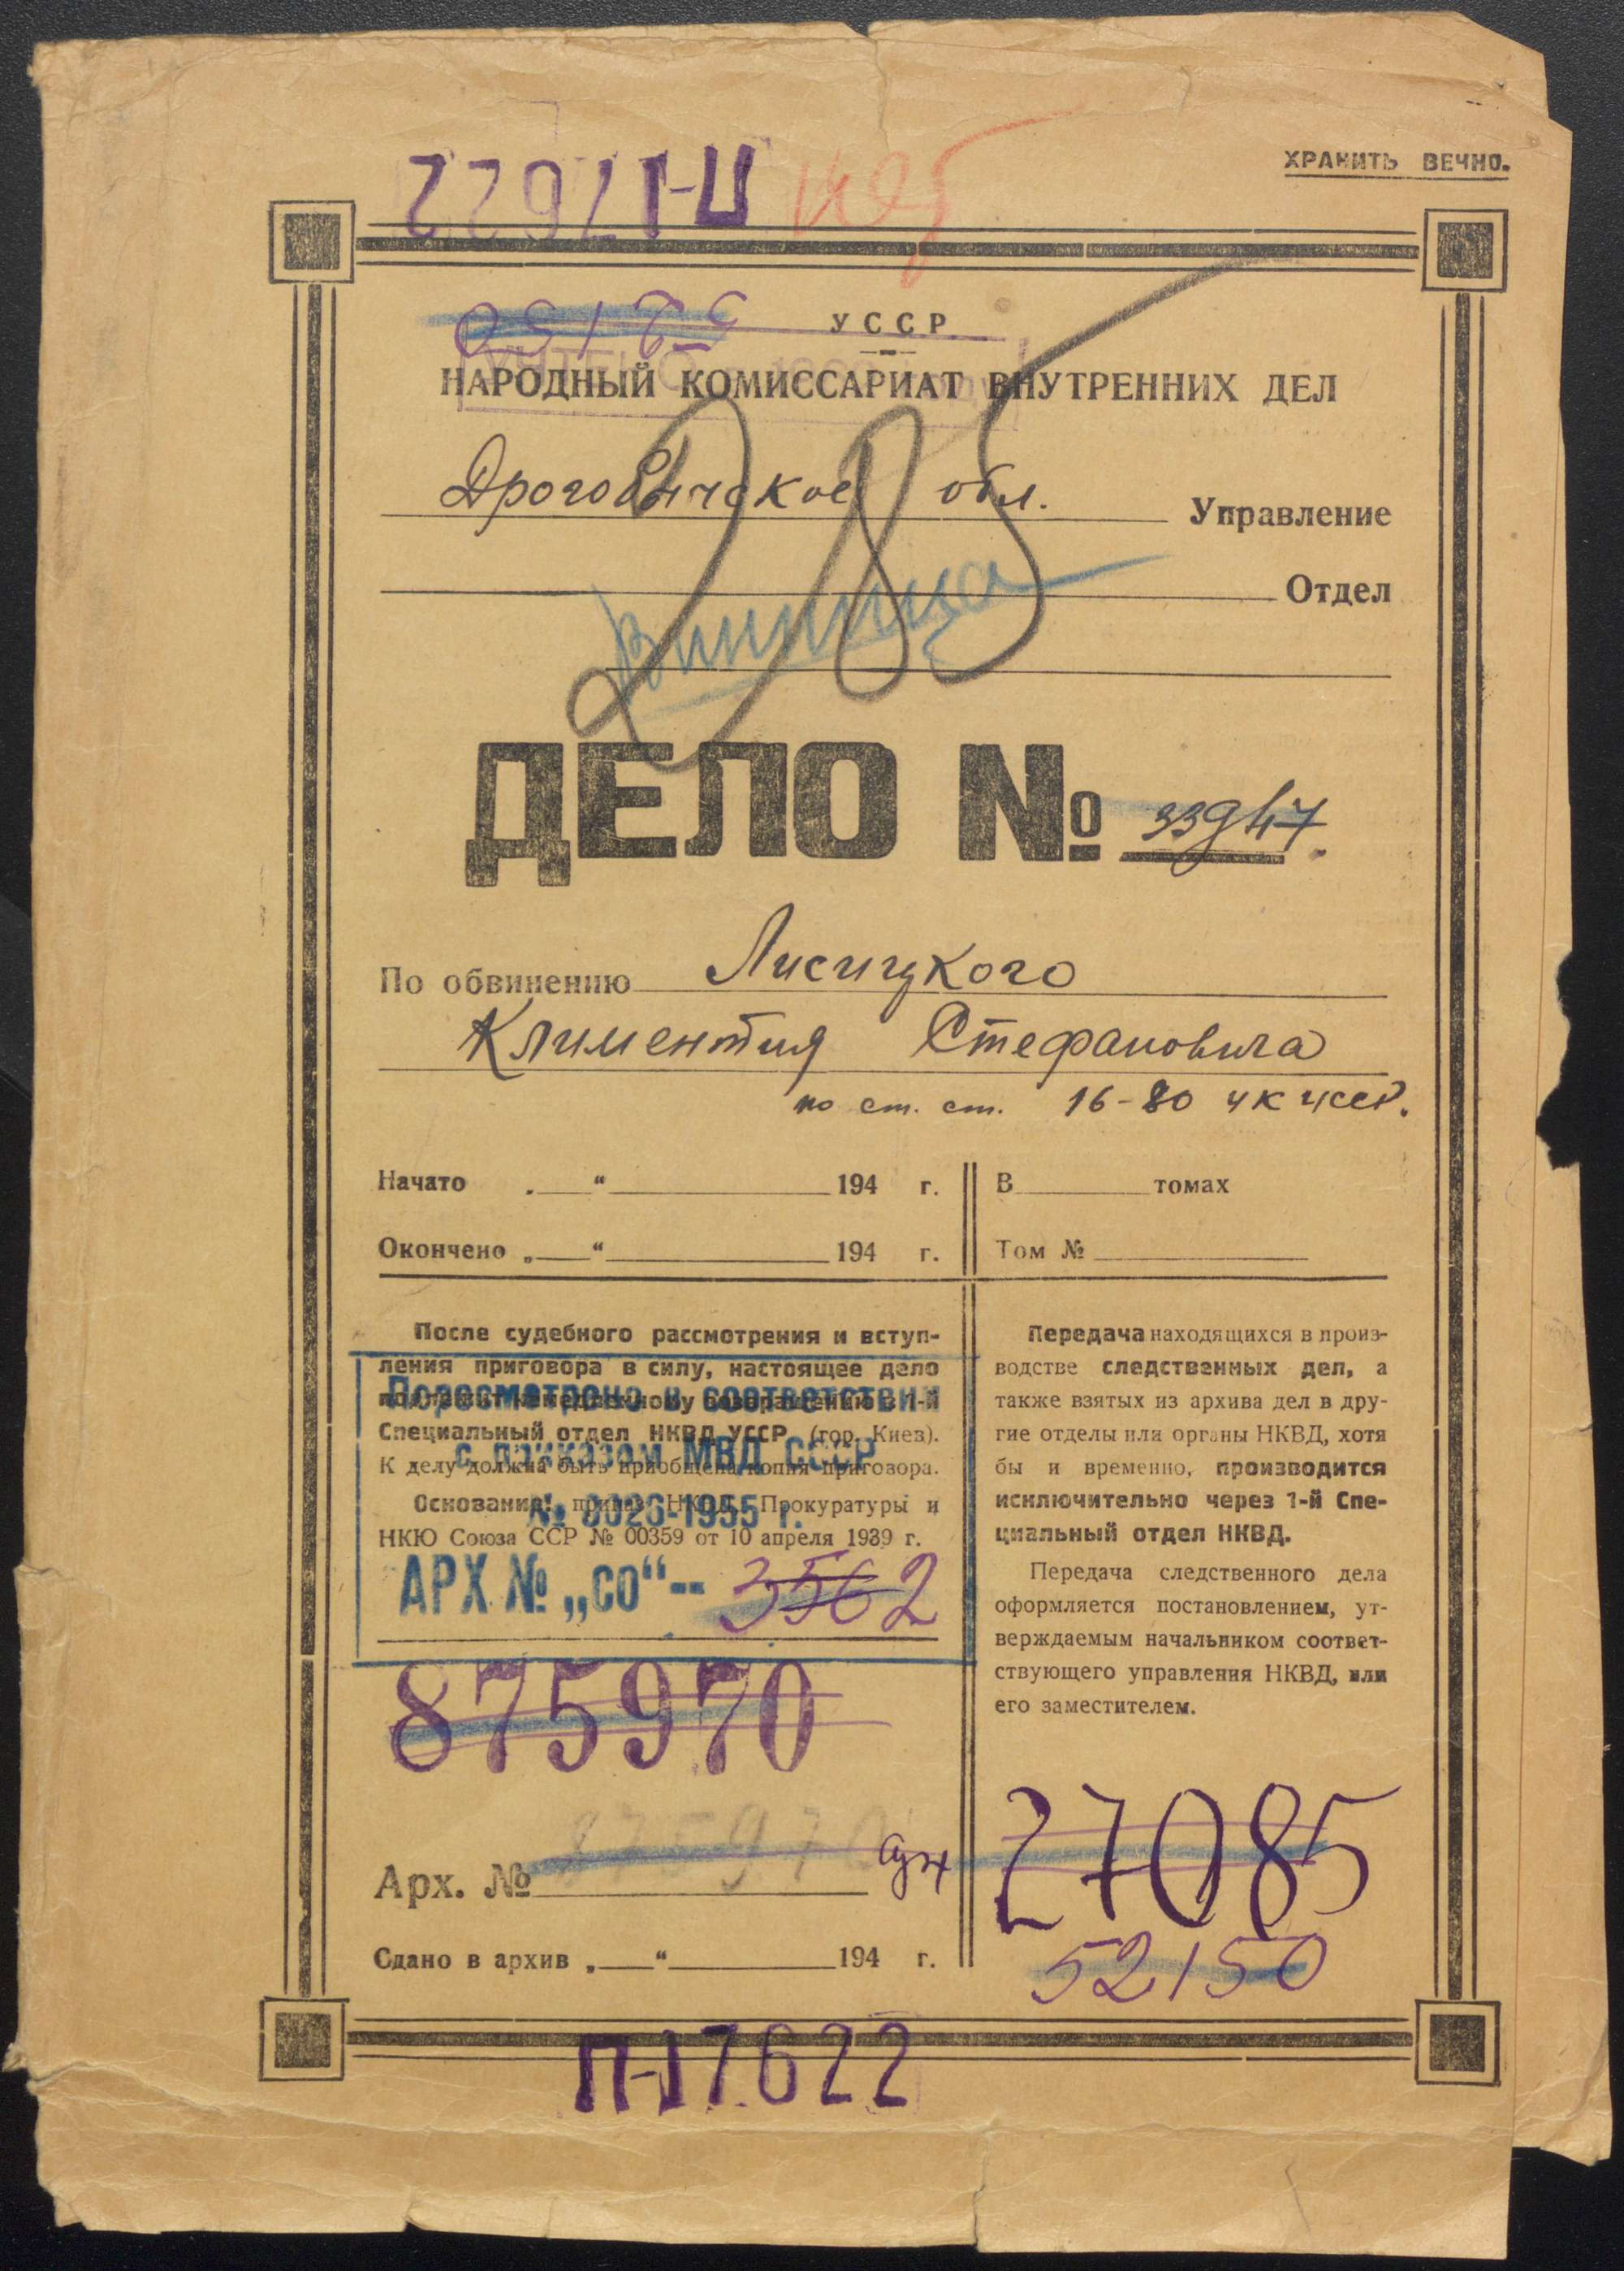 ХРАНИТЬ ВЕЧНО.
П-17622
52150
УССР
НАРОДНЫЙ КОМИССАРИАТ ВНУТРЕННИХ ДЕЛ
Дрогобычское обл. Управление
Отдел
Винница
285
ДЕЛО № 33947.
По обвинению Лисицкого
Климентия Стефановича
по ст. ст. 16-80 УК УССР.
Начато „ “ 194 г.
Окончено „ “ 194 г.
В томах
Том №
После судебного рассмотрения и вступ-
ления приговора в силу, настоящее дело
подлежит немедленному возвращению в 1-й
Специальный отдел НКВД УССР (гор. Киев).
К делу должна быть приобщена копия приговора.
Основание: приказ НКВД, Прокуратуры и
НКЮ Союза ССР № 00359 от 10 апреля 1939 г.
Пересмотрено в соответствии
с приказом МВД СССР
№ 0026-1955 г.
АРХ № „СО“-- 3562
875970
Арх. № 875970
Сдано в архив „ “ 194 г.
Передача находящихся в произ-
водстве следственных дел, а
также взятых из архива дел в дру-
гие отделы или органы НКВД, хотя
бы и временно, производится
исключительно через 1-й Спе-
циальный отдел НКВД.
Передача следственного дела
оформляется постановлением, ут-
верждаемым начальником соответ-
ствующего управления НКВД, или
его заместителем.
27085
52150
П-17622